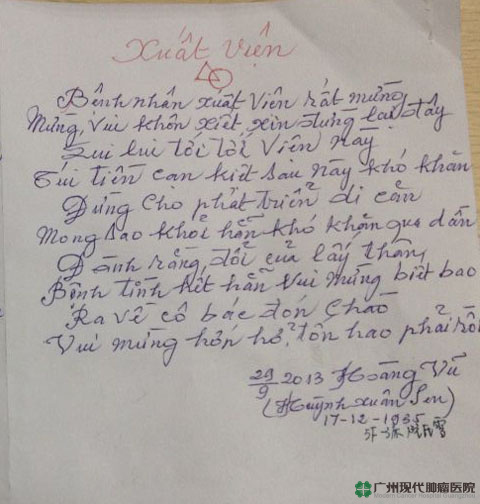 Xuất Viện
Bệnh nhân xuất viện rất mừng
Mừng, vui khôn xiết xin dừng lại đây
Lui lui tới tới viện này
Túi tiền cạn kiệt sau này khó khăn
Đừng cho phát triển di căn
Mong sao khỏi hẳn khó khăn qua dần
Đành rằng đổi của lấy thân,
Bệnh tình hết hẳn vui mừng biết bao
Ra về cô bác đón chào
Vui mừng hớn hở, tốn hao phải rồi
29/9 2013 Hoàng Vũ
(Huỳnh Xuân Sen)
17-12-1935
广州现代肿瘤医院